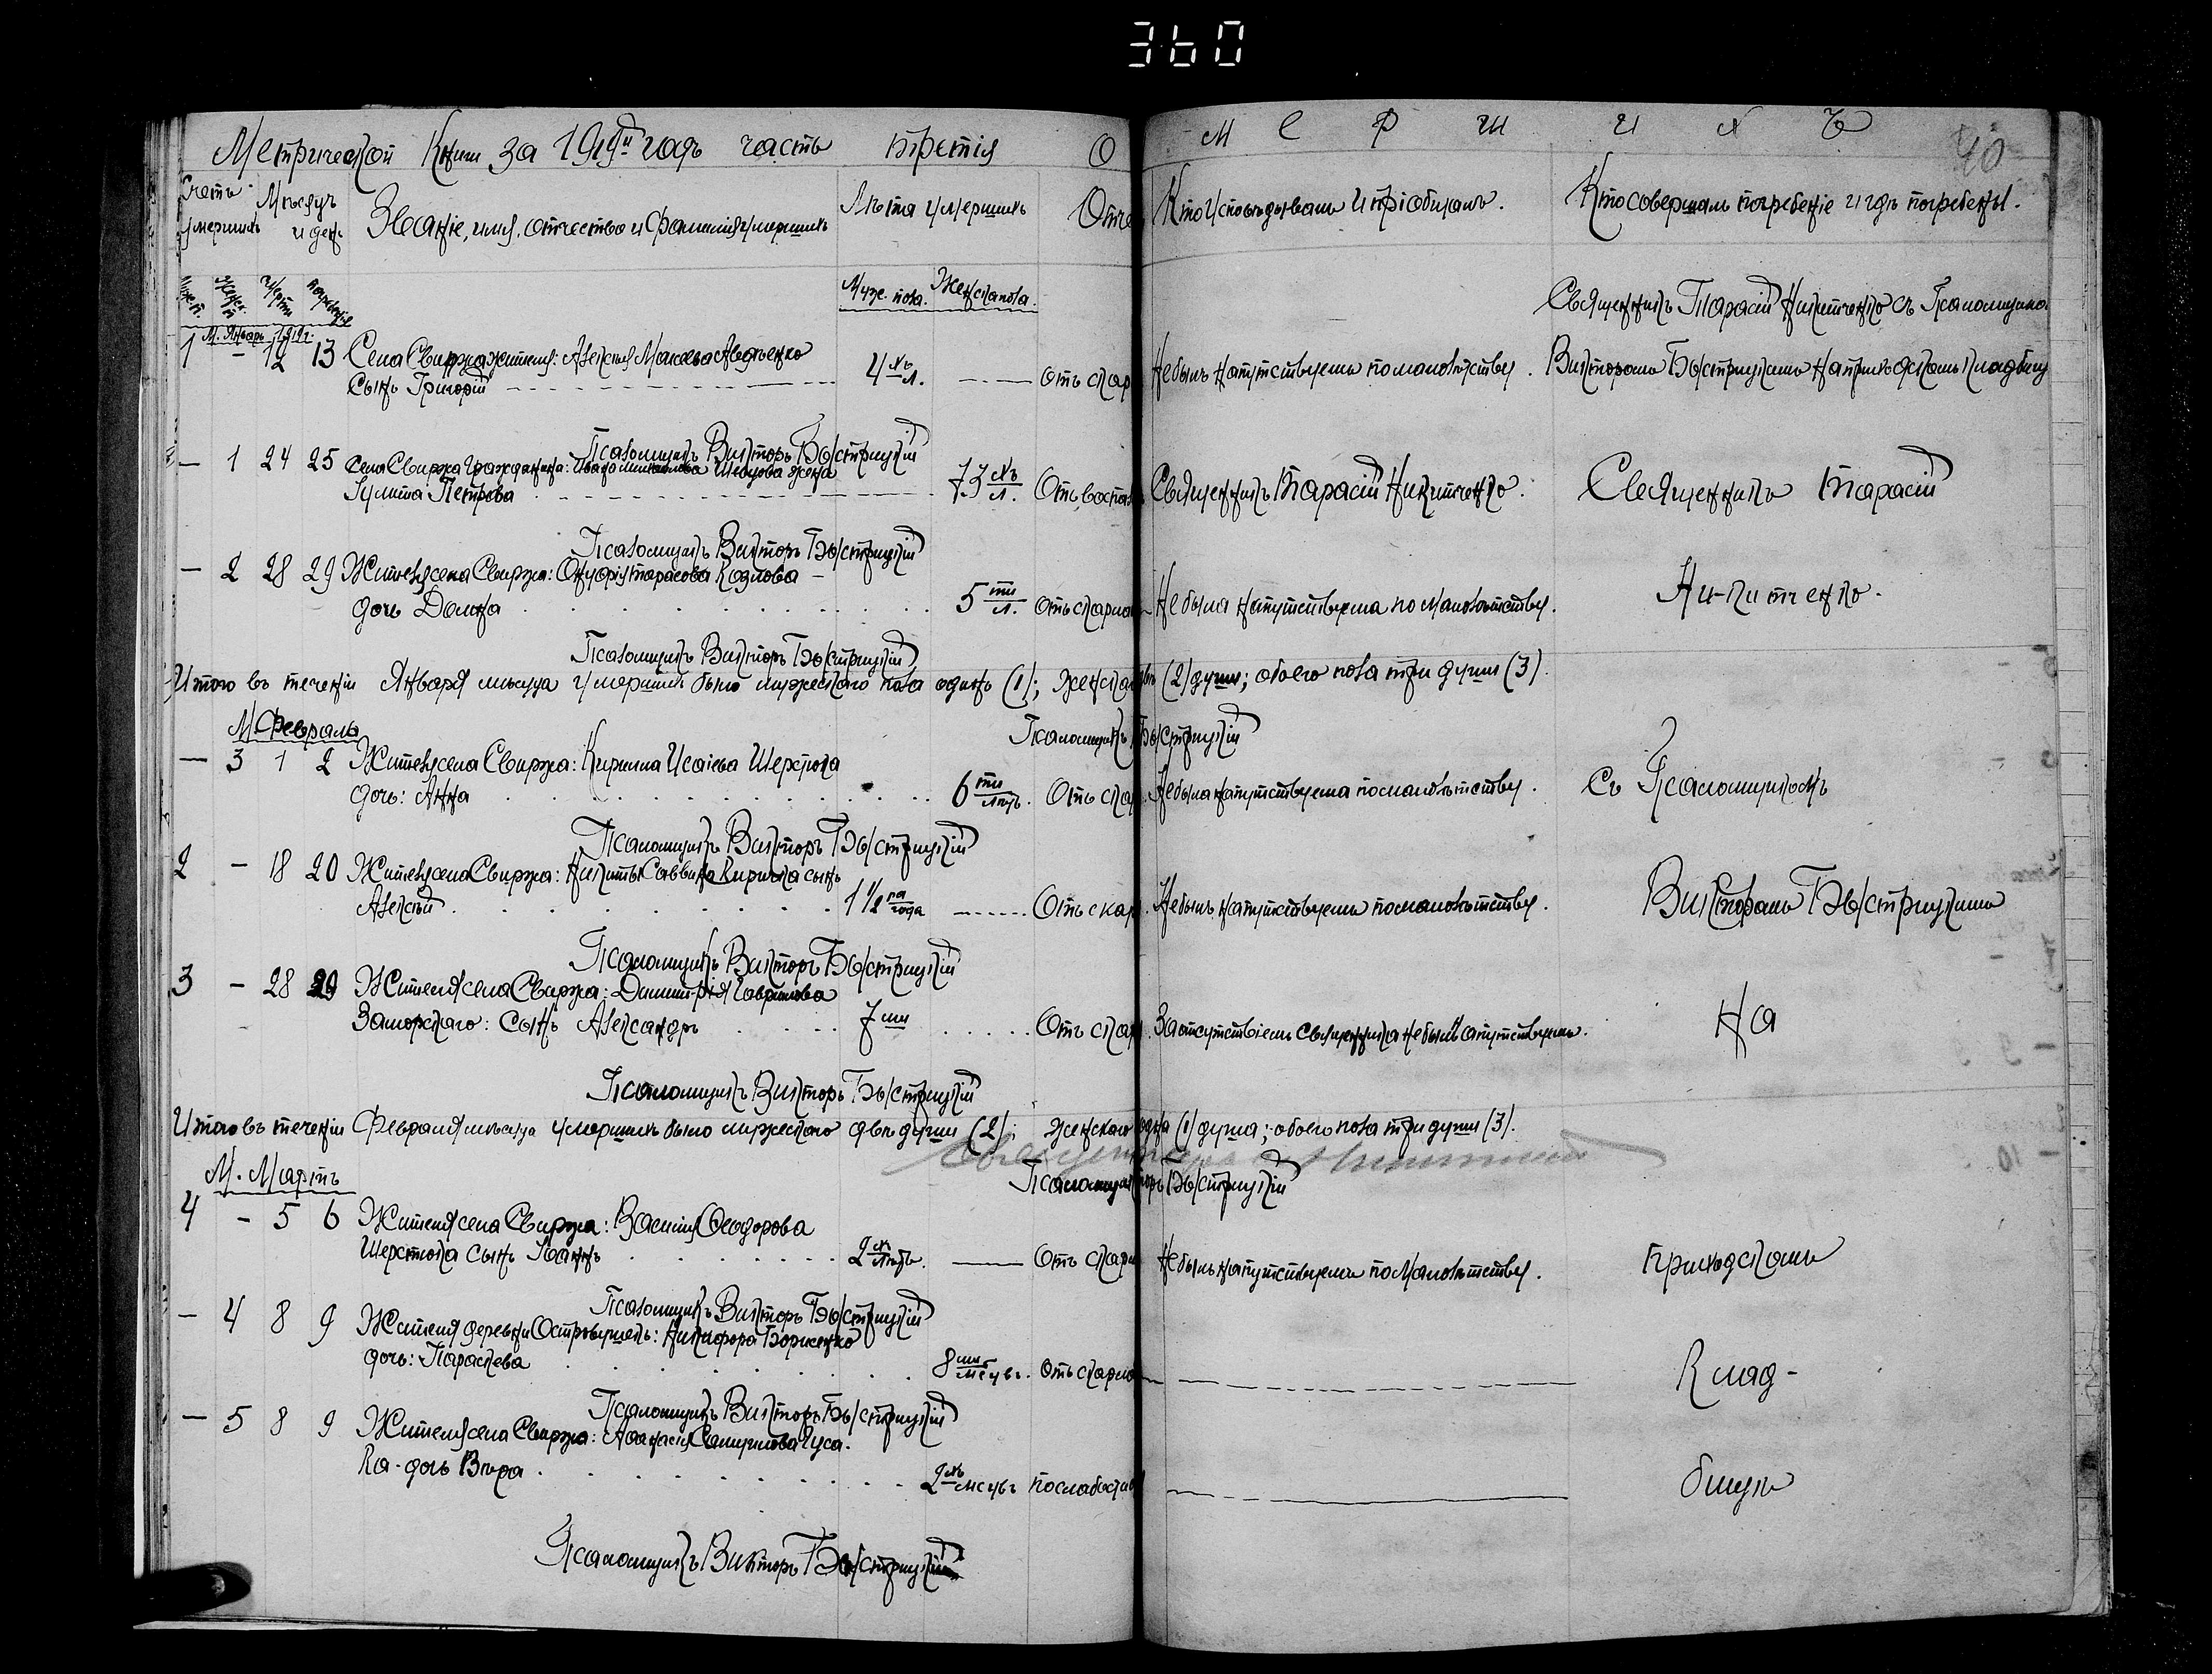 360
Метрической Книги за 1919й годъ часть третія О
М Е Р Ш И Х Ъ
40
Счетъ умершихъ
Мѣсяцъ и день
Званіе, имя, отчество и фамилія умершихъ
Лѣта умершихъ
Отче
Кто исповѣдывалъ и пріобщалъ.
Кто совершалъ погребеніе и гдѣ погребены.
Муж. п. Женск. п. Смерти погребенія
Муж. пола. Женск. пола.
М. Январь 1919 г.
1 – 12 13 Села Свиржа жителя: Алексія
сынъ Григорій 4хъ л. Отъ скар
Небылъ напутствуемъ помалолѣтству.
Священникъ Тарасій Никитченко съ Псаломщикомъ
Викторомъ Быстрицкимъ на приходскомъ кладбищ
Псаломщикъ Викторъ Быстрицкій
– 1 24 25 Села Свиржа гражданина: жена
Іулита Петрова 73хъ л. Отъ воспал
Священникъ Тарасій Никитченко.
Священникъ Тарасій
Псаломщикъ Викторъ Быстрицкій
– 2 28 29 Жителя села Свиржа: Онуфрія Тарасова Козлова –
дочь Домна 5ти л. отъ скарла
Небыла напутствуема по малолѣтству.
Ни-китченко.
Псаломщикъ Викторъ Быстрицкій
Итого въ теченіи Января мѣсяца умершихъ было мужеского пола одинъ (1); женска (2) души; обоего пола три души (3).
М. Февраль
Псаломщикъ Быстрицкій
– 3 1 2 Жителя села Свиржа: Кирилла Исаіева Шерстюка
дочь: Анна 6ти лѣтъ. Отъ скар
Небыла напутствуема помалолѣтству.
Съ Псаломщикомъ
Псаломщикъ Викторъ Быстрицкій
2 – 18 20 Жителя села Свиржа: Никиты Саввина Кирика сынъ
Алексій 1 1/2 года Отъ скар
Небылъ напутствуемъ помалолѣтству.
Викторомъ Быстрицкимъ
Псаломщикъ Викторъ Быстрицкій
3 – 28 29 Жителя села Свиржа: Димитрія Гаврилова
Заморскаго: сынъ Александръ 7ми Отъ скар
За отсутствіемъ священника небылъ напутствуемъ.
На
Псаломщикъ Викторъ Быстрицкій
Итого въ теченіи Февраля мѣсяца умершихъ было мужеского двѣ души (2); женского одна (1) душа; обоего пола три души (3).
М. Мартъ
Псаломщикъ Быстрицкій
4 – 5 6 Жителя села Свиржа: Василія Ѳеодорова
Шерстюка сынъ Іоаннъ 2хъ лѣтъ. Отъ скарл
Небылъ напутствуемъ помалолѣтству.
приходскомъ
Псаломщикъ Викторъ Быстрицкій
– 4 8 9 Жителя деревни Никифора Борженко
дочь: Параскева 8ми мѣсцвъ. Отъ скарла
Клад-
Псаломщикъ Викторъ Быстрицкій
– 5 8 9 Жителя села Свиржа: Аѳанасія Самуилова Гуса.
ка - дочь Вѣра 2хъ мсцвъ послабости
бищѣ
Псаломщикъ Викторъ Быстрицкій